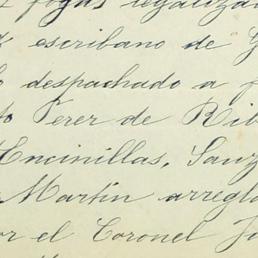 fojas legalizad
escribano de G
despachado a f
to Perer de Rib
Encinillas, Sanz
Martín arregla
or el Coronel Ju